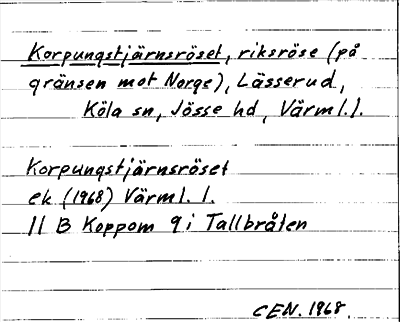 Korpungstjärnsröset, riksröse (på
gränsen mot Norge), Lässerud,
Köla sn, Jösse hd, Värml. l.
Korpungstjärnsröset
ek (1968) Värml. l.
11 B Koppom 9 i Tallbråten
CEN. 1968.